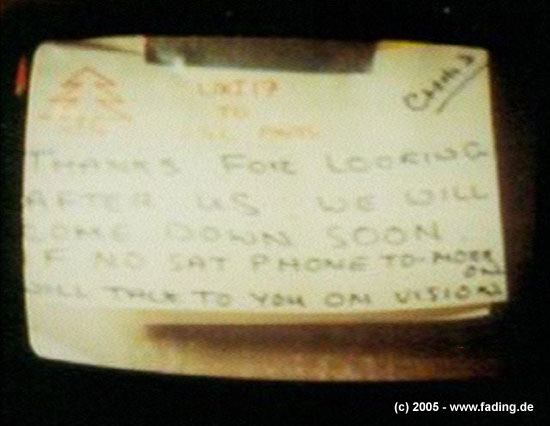 TO
THANKS FOR LOOKING
AFTER US WE WILL
COME DOWN SOON.
F NO SAT PHONE TO-MORR
ON
WILL TALK TO YOU ON VISION
(c) 2005 - www.fading.de